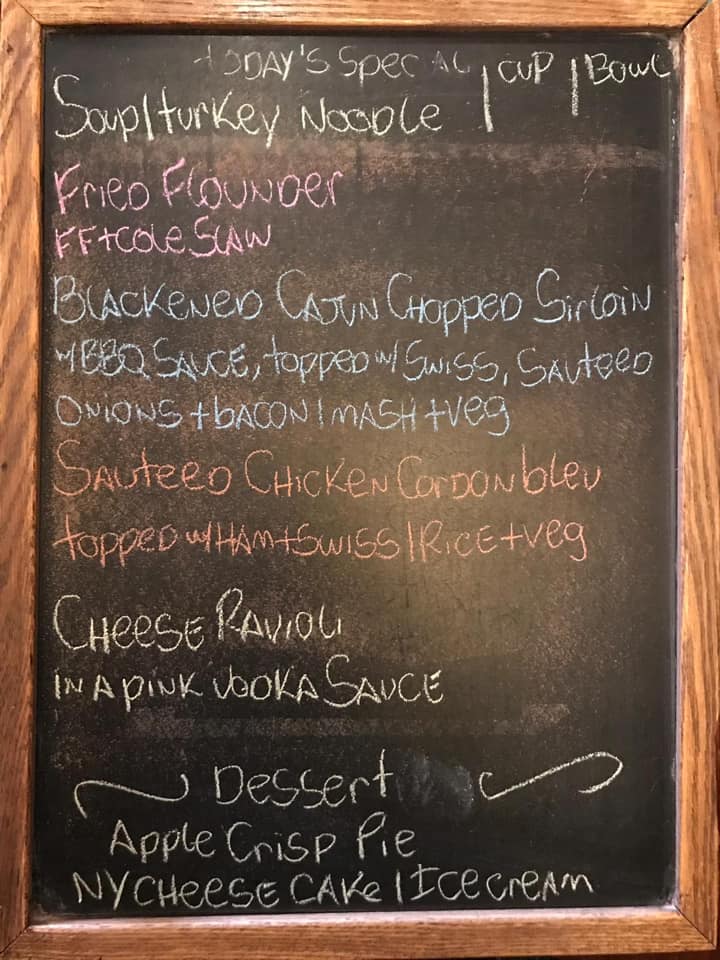 TODAY'S SPECIAL | CUP | BOWL
Soup | turkey Noodle
Fried Flounder
FF + Cole Slaw
Blackened Cajun Chopped Sirloin
w/ BBQ Sauce, topped w/ Swiss, Sauteed
Onions + bacon | mash + veg
Sauteed Chicken Cordon bleu
topped w/ Ham + Swiss | Rice + veg
Cheese Ravioli
in a pink vodka Sauce
Dessert
Apple Crisp Pie
NY CHEESE CAKE | Ice cream